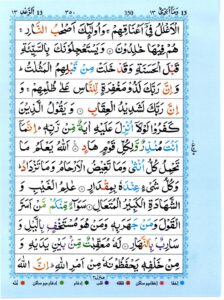 الرعد ١٣ 13 ٣٥٠ 350 ١٣ وما ابرئ 13
الْاَغْلٰلُ فِیْۤ اَعْنَاقِهِمْ ۚ وَاُولٰٓىِٕكَ اَصْحٰبُ النَّارِ ۚ
هُمْ فِیْهَا خٰلِدُوْنَ ۝ وَیَسْتَعْجِلُوْنَكَ بِالسَّیِّئَةِ
قَبْلَ الْحَسَنَةِ وَقَدْ خَلَتْ مِنْ قَبْلِهِمُ الْمَثُلٰتُ ؕ
وَاِنَّ رَبَّكَ لَذُوْ مَغْفِرَةٍ لِّلنَّاسِ عَلٰی ظُلْمِهِمْ ۚ
وَاِنَّ رَبَّكَ لَشَدِیْدُ الْعِقَابِ ۝ وَیَقُوْلُ الَّذِیْنَ
كَفَرُوْا لَوْلَاۤ اُنْزِلَ عَلَیْهِ اٰیَةٌ مِّنْ رَّبِّهٖ ؕ اِنَّمَاۤ
اَنْتَ مُنْذِرٌ وَّلِكُلِّ قَوْمٍ هَادٍ ۝ اَللّٰهُ یَعْلَمُ مَا
تَحْمِلُ كُلُّ اُنْثٰی وَمَا تَغِیْضُ الْاَرْحَامُ وَمَا تَزْدَادُ ؕ
وَكُلُّ شَیْءٍ عِنْدَهٗ بِمِقْدَارٍ ۝ عٰلِمُ الْغَیْبِ وَ
الشَّهَادَةِ الْكَبِیْرُ الْمُتَعَالِ ۝ سَوَآءٌ مِّنْكُمْ مَّنْ اَسَرَّ
الْقَوْلَ وَمَنْ جَهَرَ بِهٖ وَمَنْ هُوَ مُسْتَخْفٍۭ بِالَّیْلِ وَ
سَارِبٌۢ بِالنَّهَارِ ۝ لَهٗ مُعَقِّبٰتٌ مِّنْۢ بَیْنِ یَدَیْهِ وَ
مِنْ خَلْفِهٖ یَحْفَظُوْنَهٗ مِنْ اَمْرِ اللّٰهِ ؕ اِنَّ اللّٰهَ